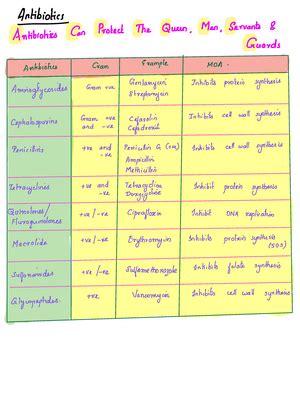 Antibiotics
Antibiotics Can Protect The Queen, Men, Servants &
Guards
Antibiotics Gram Example MOA
Aminoglycosides Gram +ve Gentamycin Inhibits protein synthesis
Streptomycin
Cephalosporins Gram +ve Cefazolin Inhibits cell wall synthesis
and -ve Cefadroxil
Penicillins +ve and Penicillin G Inhibits cell wall synthesis
-ve Ampicillin
Methicillin
Tetracyclines +ve and Tetracycline Inhibit protein synthesis
-ve Doxycycline
Quinolones/ +ve/-ve Ciprofloxin Inhibit DNA replication
Fluroquinolones
Macrolide +ve/-ve Erythromycin Inhibits protein synthesis
(50S)
Sulfonamides +ve/-ve Sulfamethoxazole Inhibits folate synthesis
Glycopeptides +ve Vancomycin Inhibits cell wall synthesis